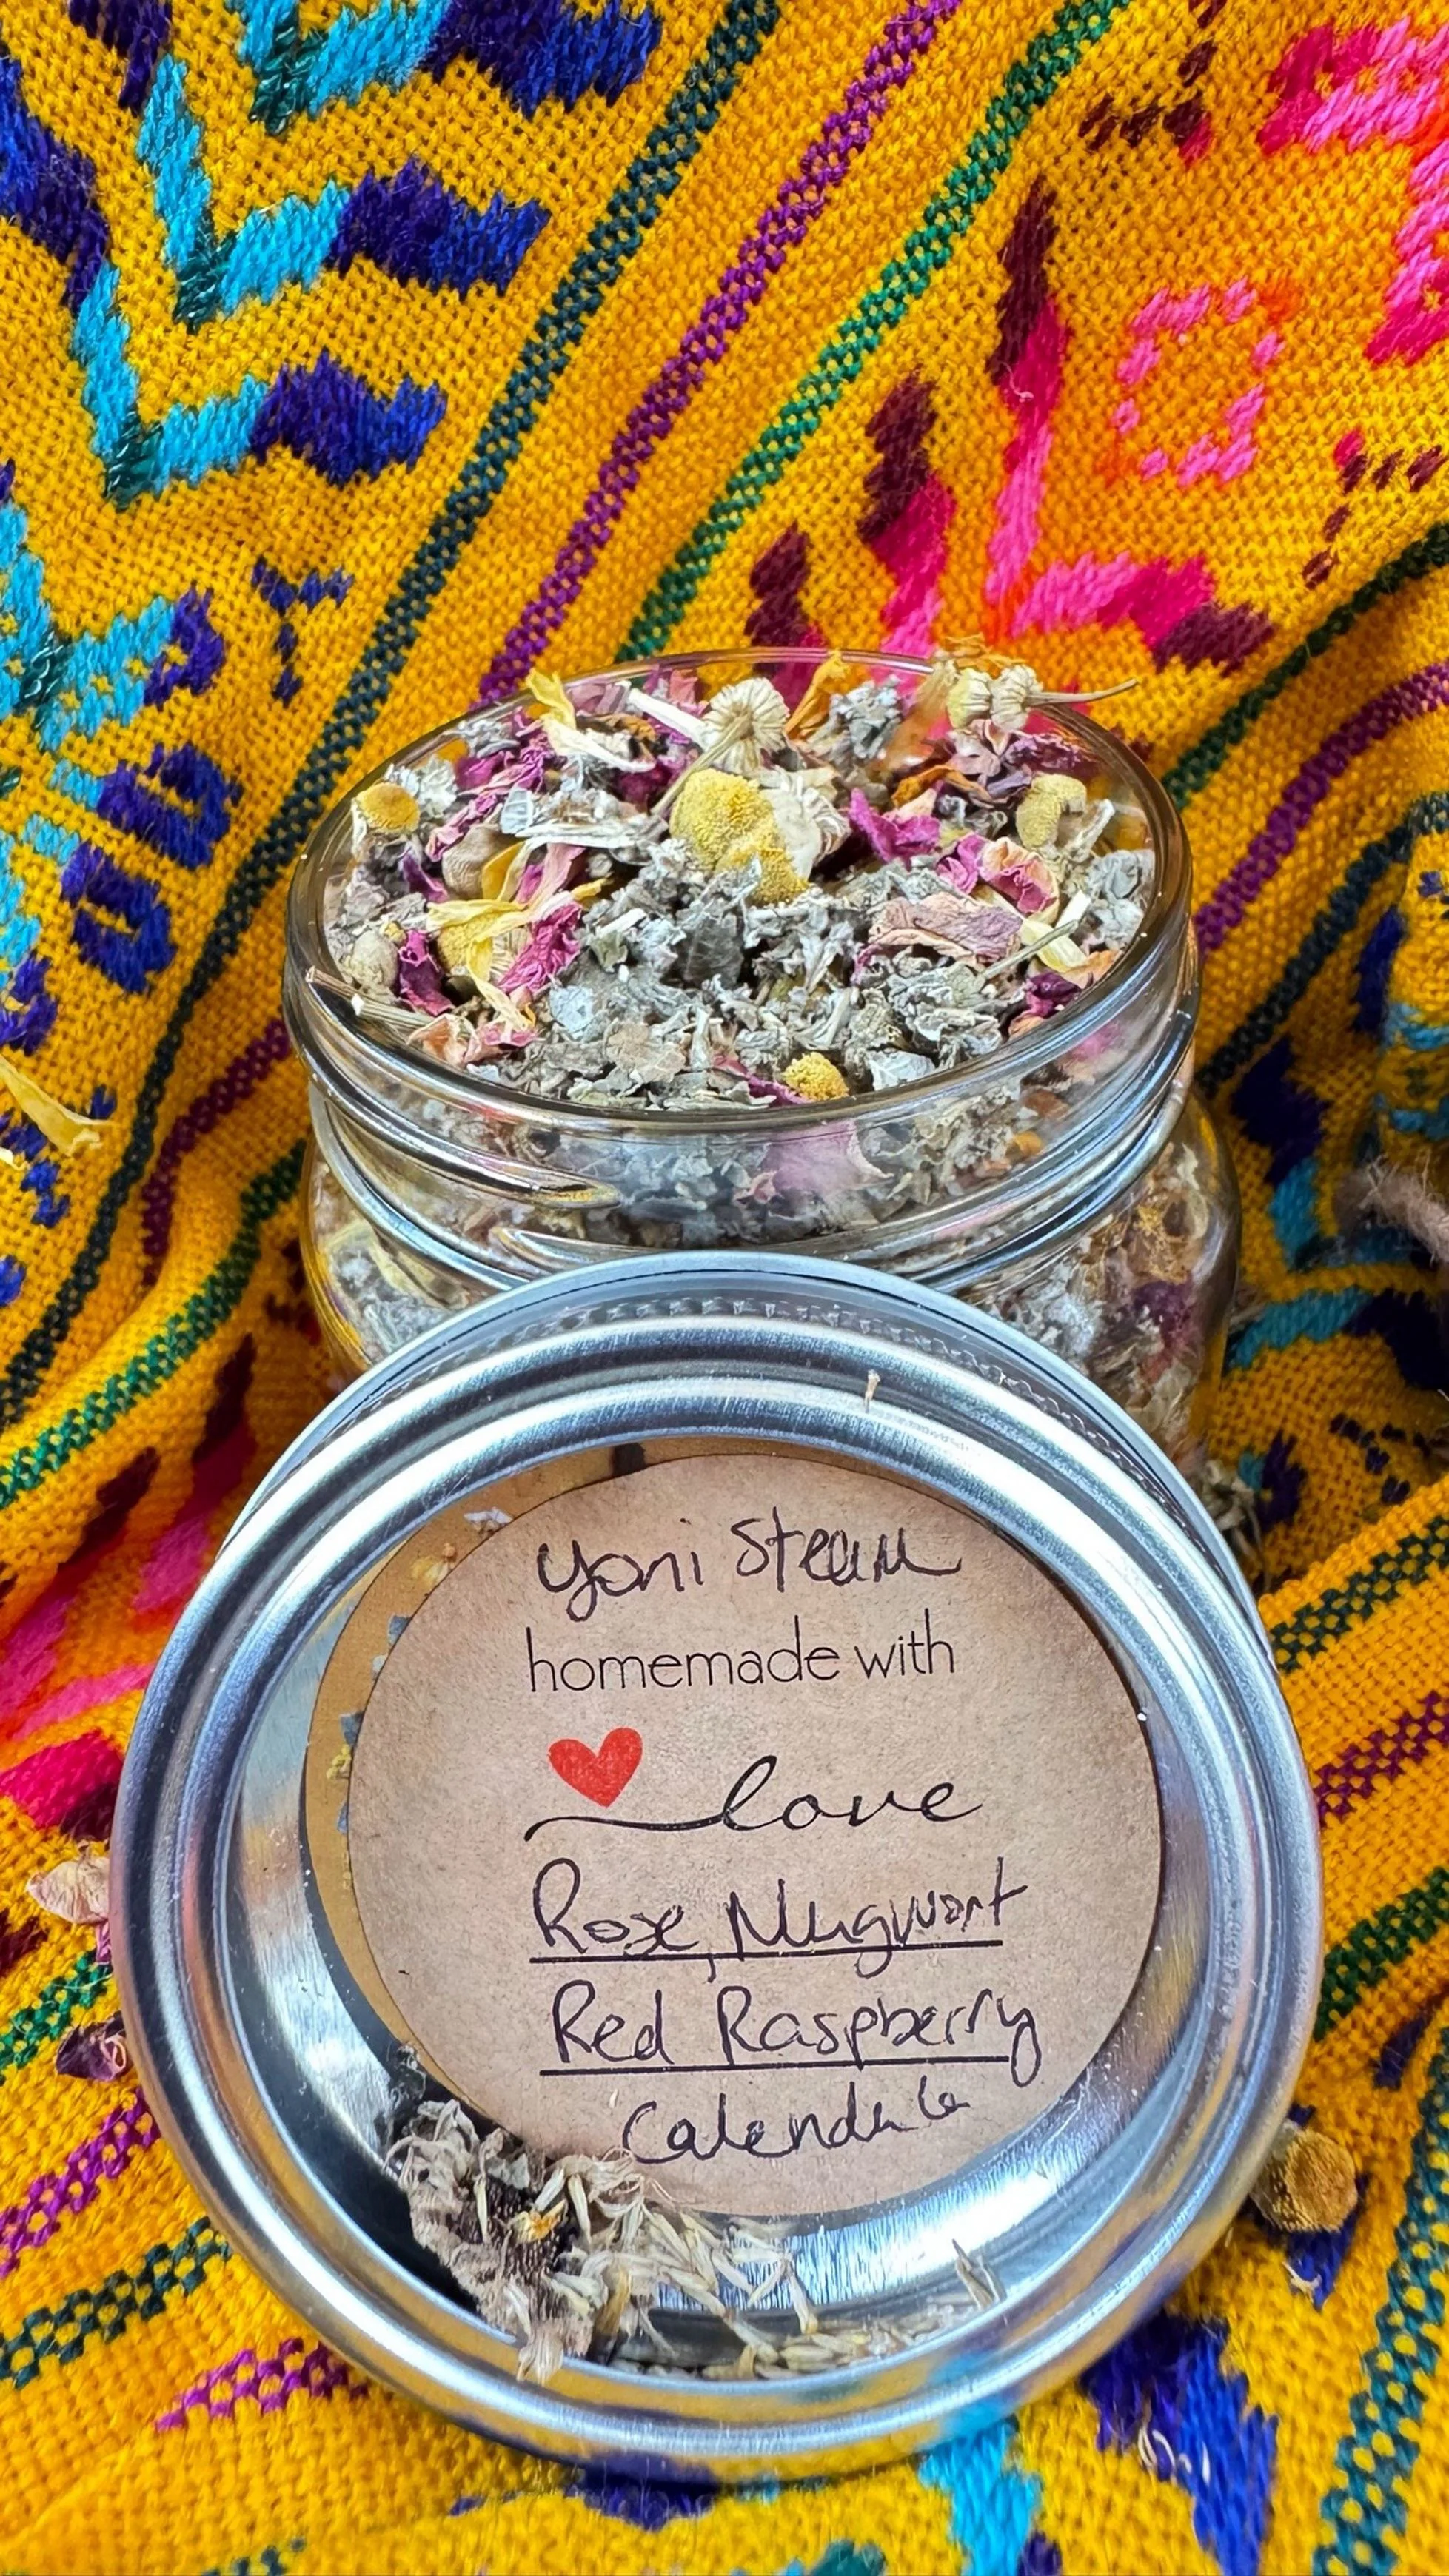 Yoni Steam
homemade with
love
Rose, Mugwort
Red Raspberry
Calendula